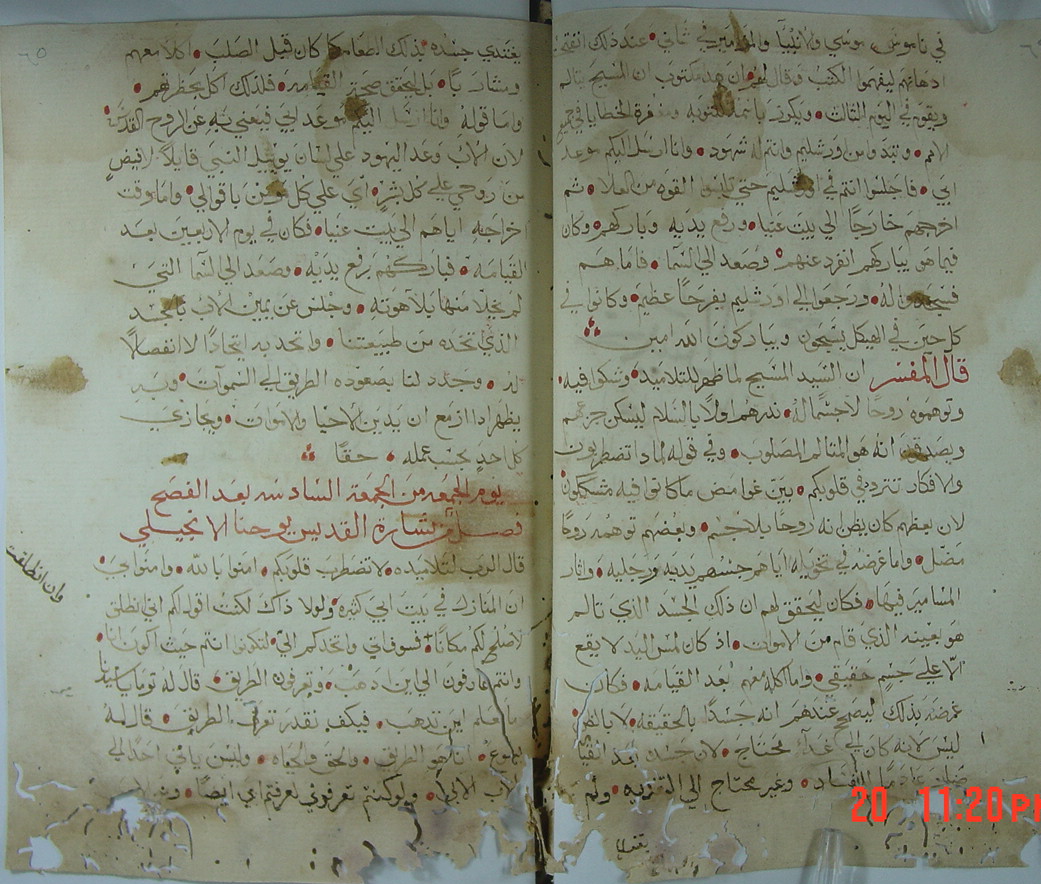 في ناموس موسي والانبيا والمزامير في شاني • عند ذلك انفتحت
اذهانهم ليفهموا الكتب وقال لهم ان هذا مكتوب ان المسيح يتالم
ويقوم في اليوم الثالث • ويكرز باسمه بالتوبه ومغفرة الخطايا في جميع
الامم • وتبدوا من اورشليم وانتم له شهود • وانا ارسل اليكم موعد
ابي • فاجلسوا انتم في اورشليم حتي تلبسوا القوه من العلا • ثم
اخرجهم خارجًا الي بيت عنيا • ورفع يديه وباركهم • وكان
فيما هو يباركهم انفرد عنهم • وصعد الي السما • فاما هم
فسجدوا له • ورجعوا الي اورشليم بفرحًا عظيم • وكانوا في
كل حين في الهيكل يسبحون ويباركون الله امين
قال المفسر ان السيد المسيح لما ظهر للتلاميذ • وشكوا فيه •
وتوهموه روحًا لا جسمًا له • بدرهم اولًا بالسلام ليسكن جزعهم
ويصدقون انه هو المتالم المصلوب • وفي قوله لماذا تضطربون
والافكار تتردد في قلوبكم • بيّن غوامض ما كانوا فيه مشككون
لان بعضهم كان يظن انه روحًا بلا جسم • وبعضهم توهمه روحًا
مضل • واما غرضه في تخويله اياهم جسهم يديه ورجليه • واثار
المسامير فيها • فكان ليحقق لهم ان ذلك الجسد الذي تالم
هو بعينه الذي قام من الاموات • اذ كان لمس اليد لا يقع
الا علي جسم حقيقي • واما اكله معهم بعد القيامه • فكان
غرضه بذلك ليصح عندهم انه جسدًا بالحقيقه • لا بالظن
ليس لانه كان الي غدآء محتاج • لان جسده بعد القيامه
الفساد • وغير محتاج الي التغذيه • ولم
يغتدي جسده بذلك الطعام كما كان قبل الصلب • اكلا معهم
وشاربًا • بل ليحقق صحة القيامه • فلذلك اكل بحظرتهم •
واما قوله وانا ارسل اليكم موعد ابي فيعني به عن الروح القدس •
لان الاب وعد اليهود علي لسان يوييل النبي قايلًا لافيض
من روحي علي كل بشر • اي علي كل مومن باقوالي • واما وقت
اخراجه اياهم الي بيت عنيا • فكان في يوم الاربعين بعد
القيامه • فباركهم برفع يديه • وصعد الي السما التي
لم يخلا منها بلاهوته • وجلس عن يمين الاب بالجسد
الذي اتخده من طبيعتنا • واتحد به اتحادًا لا انفصالًا
له • وجدد لنا بصعوده الطريق الي السموات • وبه
يظهر اذا ازمع ان يدين الاحيا والاموات • ويجازي
كل احدٍ بحسب عمله • حقًا
يوم الجمعه من الجمعة السادسه بعد الفصح
فصل من بشارة القديس يوحنا الانجيلي
قال الرب لتلاميذه • لا تضطرب قلوبكم • امنوا بالله • وامنوا بي •
ان المنازل في بيت ابي كثيره • ولولا ذاك لكنت اقول لكم اني انطلق
لاصلح لكم مكانًا • فسوف اتي واتخدكم اليّ • لتكونوا انتم حيث اكون انا •
وانتم عارفون الي اين اذهب • وتعرفون الطريق • قال له توما يا سيد
ما نعلم اين تذهب • فكيف نقدر نعرف الطريق • قال له
يسوع • انا هو الطريق • والحق والحياه • وليس ياتي احد الي
الاب الا بي • ولو كنتم تعرفوني لعرفتم ابي ايضًا •
وان انطلقت